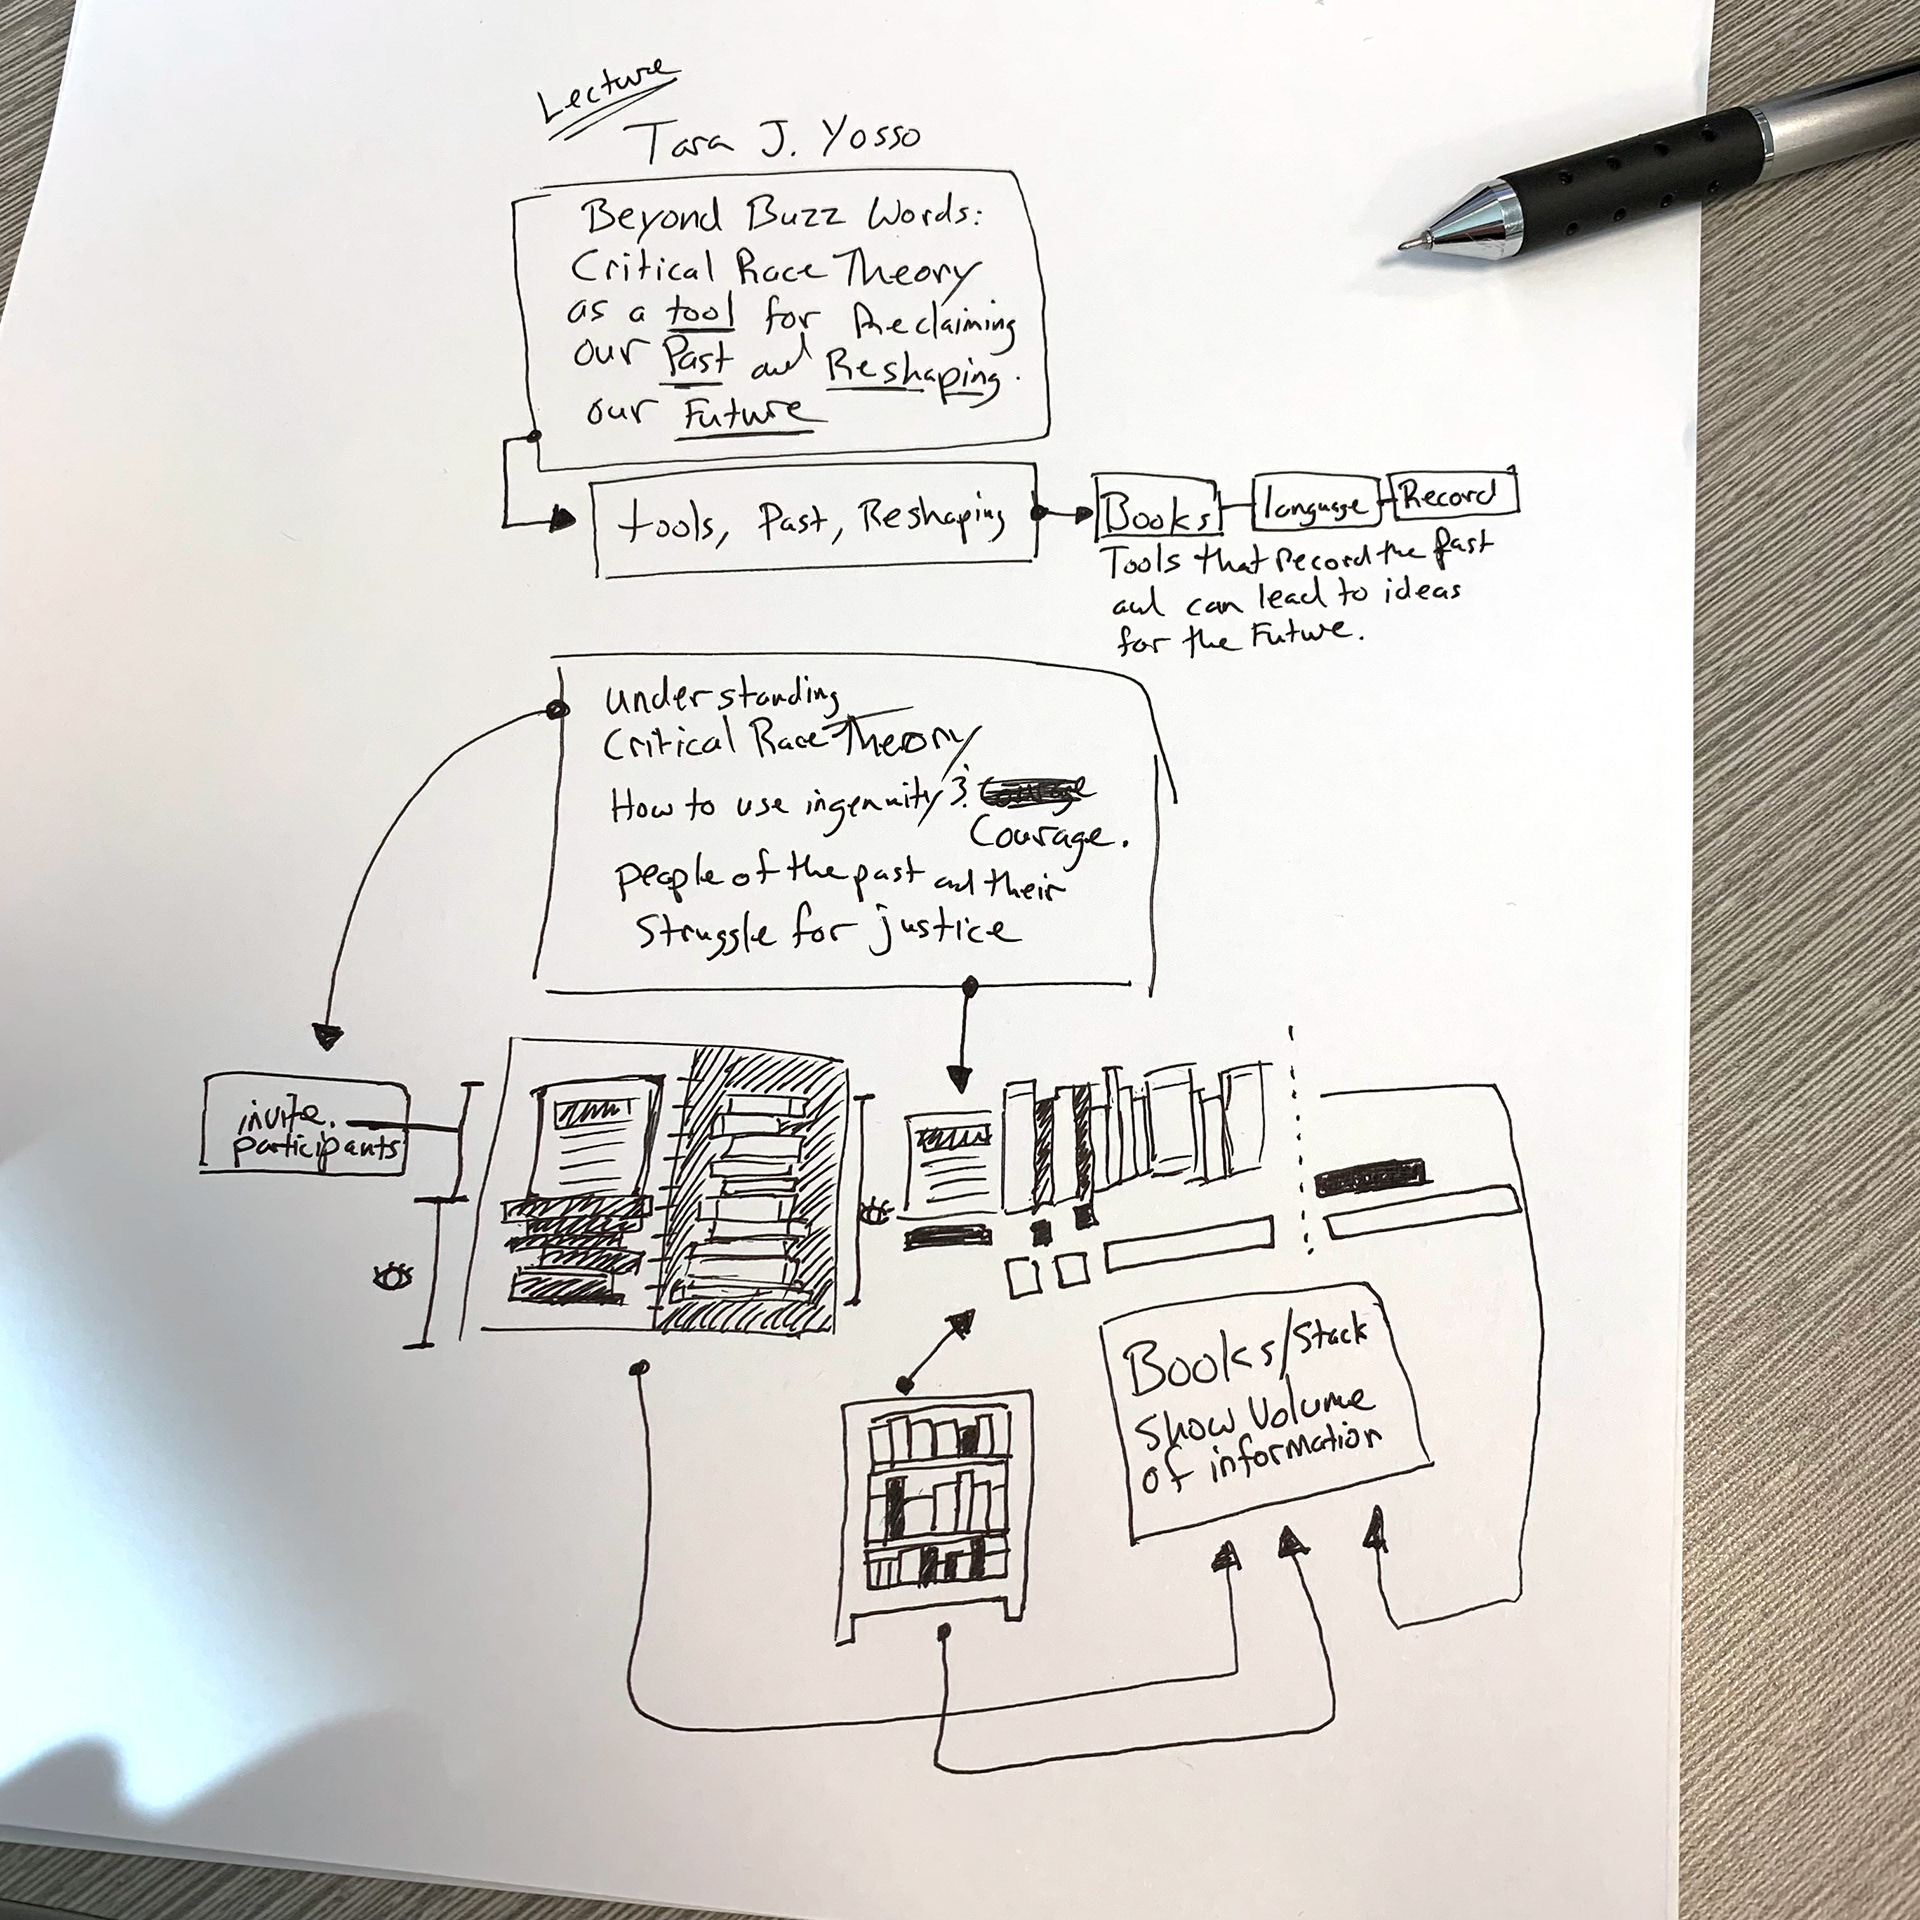 Lecture
Tara J. Yosso
Beyond Buzz Words:
Critical Race Theory
as a tool for Reclaiming
our Past and Reshaping.
our Future
tools, Past, Reshaping
Books
language
Record
Tools that record the past
and can lead to ideas
for the Future.
understanding
Critical Race Theory
How to use ingenuity &
Courage.
people of the past and their
Struggle for justice
invite.
participants
Books/Stack
show Volume
of information